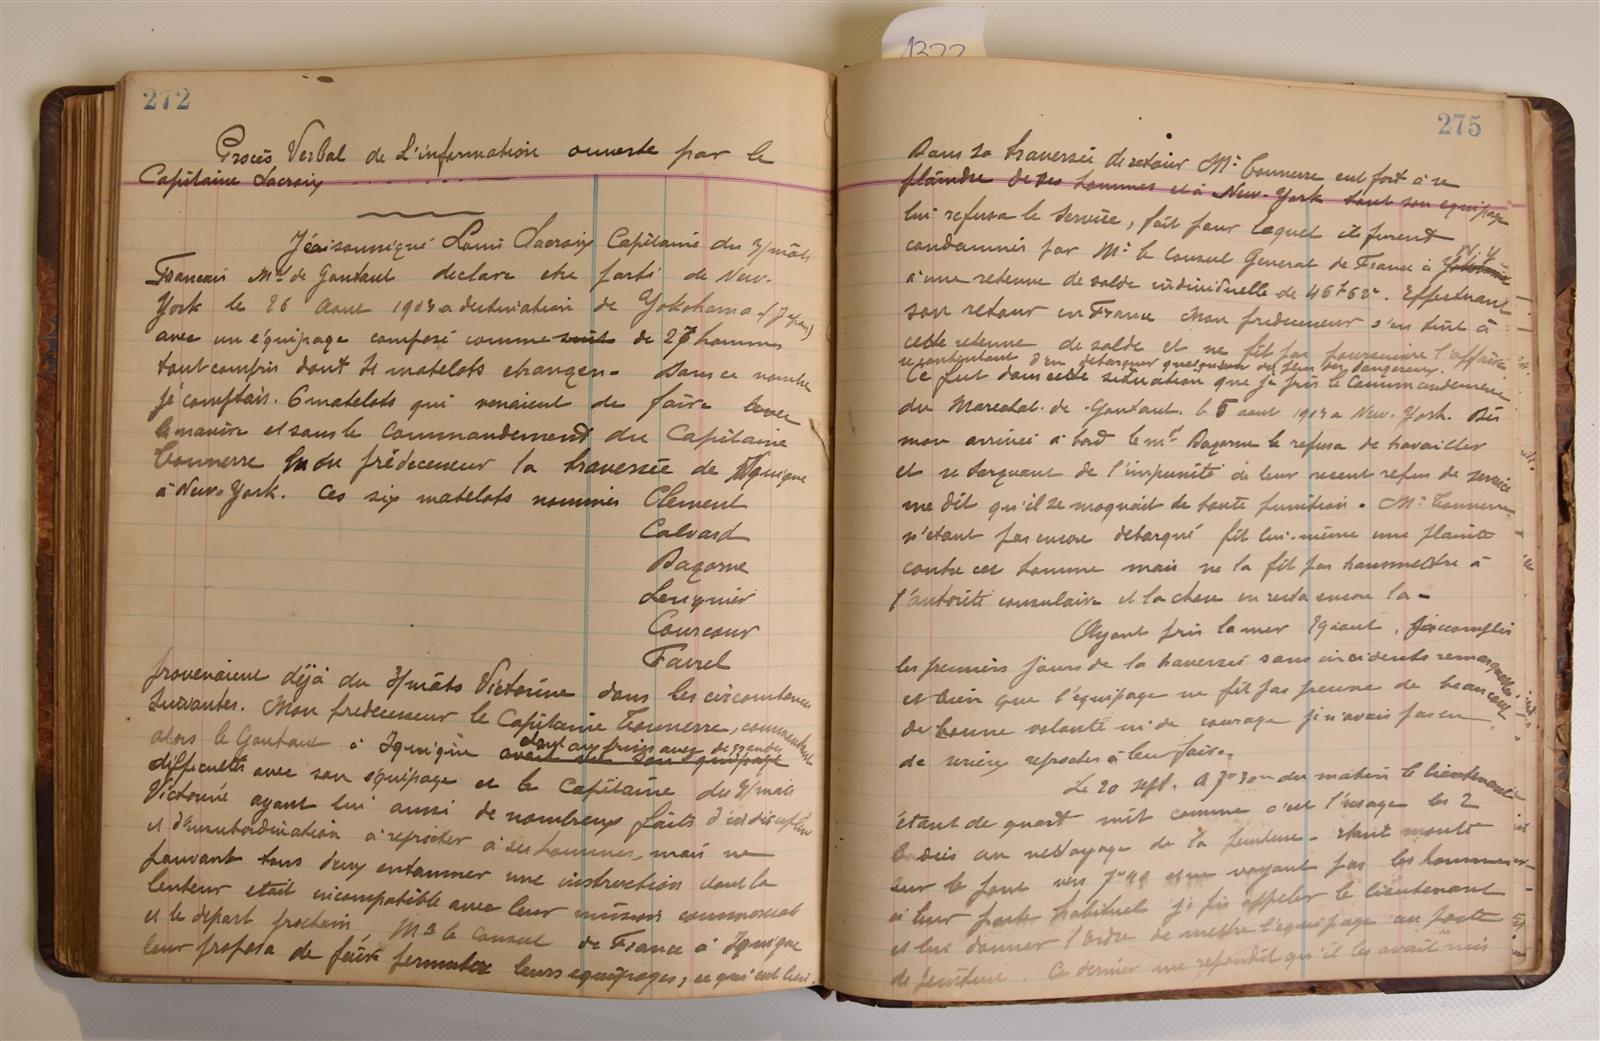 1322
272
Procès Verbal de L'information ouverte par le
Capitaine Lacroix
Je soussigné Louis Lacroix Capitaine du 3/mâts
Francais Mal de Gontaut declare etre parti de New-
York le 26 Aout 1913 a destination de Yokohama (Japon)
avec un équipage composé comme suit de 27 hommes
tout compris dont 4 matelots etrangers. Dans ce nombre
je comptais 6 matelots qui venaient de faire avec
le navire et sous le commandement du Capitaine
Tonnerre mon prédecesseur la traversée de Iquique
à New-York. Ces six matelots nommés Clement
Calvard
Dagorne
Leuguier
Courcour
Favrel
provenaient déjà du 3/mâts Victorine dans les circonstances
suivantes. Mon predecesseur le Capitaine Tonnerre, commandant
alors le Gontaut à Iquique était aux prises avec de grandes
avait eu son equipage
difficultés avec son équipage et le Capitaine du 3/mats
Victorine ayant lui aussi de nombreux faits d'indiscipline
et d'insubordination à reprocher à ses hommes, mais ne
pouvant tous deux entammer une instruction dont la
lenteur etait incompatible avec leur mission commerciale
et le depart prochain Mr le Consul de France à Iquique
leur proposa de faire permuter leurs equipages, ce qui eut lieu.
275
Dans sa traversée de retour Mr Tonnerre eut fort à se
plaindre de ses hommes et à New-York tout son equipage
lui refusa le service, fait pour lequel ils furent
condamnés par Mr le Consul General de France à N.Y.
à une retenue de solde individuelle de 46f62c. Effectuant
son retour en France Mon predecesseur s'en tint à
cette retenue de solde et ne fit pas poursuivre l'affaire
se contentant d'en debarquer quelques uns des plus dangereux.
Ce fut dans cette situation que je pris le Commandement
du Marechal de Gontaut le 5 aout 1913 a New-York. Dès
mon arrivée à bord le mot Dagorne refusa de travailler
et se targuant de l'impunité de leur recent refus de service
me dit qu'il se moquait de toute punition. Mr Tonnerre
n'étant pas encore debarqué fit lui-même une plainte
contre cet homme mais ne la fit pas transmettre à
l'autorité consulaire et la chose en resta encore la.
Ayant pris la mer aout, j'accomplis
les premiers jours de la traversée sans incidents remarquables
et bien que l'équipage ne fit pas preuve de beaucoup
de bonne volonté ni de courage je n'avais pas eu
de serieux reproches à leur faire.
Le 20 sept. A 7h30m du matin le lieutenant
étant de quart mit comme c'est l'usage les 2
bordées au nettoyage de la peinture. etant monté
sur le pont vers 7h et ne voyant pas les hommes
à leur poste habituel je fis appeler le lieutenant
et lui donner l'ordre de mettre l'équipage au poste
de peinture. Ce dernier me repondit qu'il les avait mis